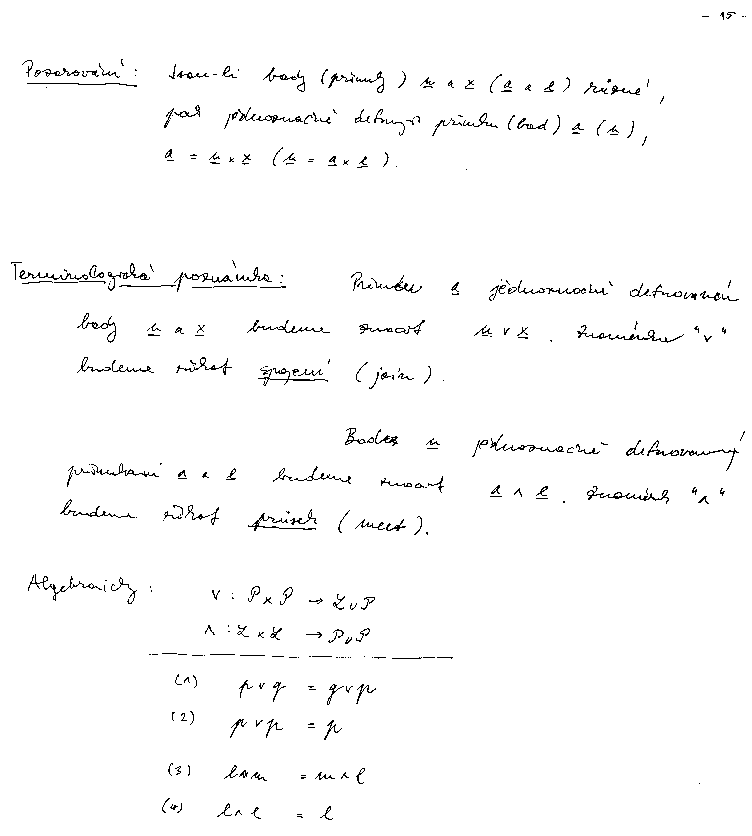 - 15 -
Pozorování: Jsou-li body (přímky) u a x (a a l) různé,
pak jednoznačně definují přímku (bod) a (u),
a = u × x (u = a × l).
Terminologická poznámka: Přímku a jednoznačně definovanou
body u a x budeme značit u ∨ x. Znaménku "∨"
budeme říkat spojení (join).
Bod u jednoznačně definovaný
přímkami a a l budeme značit a ∧ l. Znaménku "∧"
budeme říkat průsek (meet).
Algebraicky: ∨ : P × P → L ∪ P
∧ : L × L → P ∪ P
(1) p ∨ q = q ∨ p
(2) p ∨ p = p
(3) l ∧ m = m ∧ l
(4) l ∧ l = l